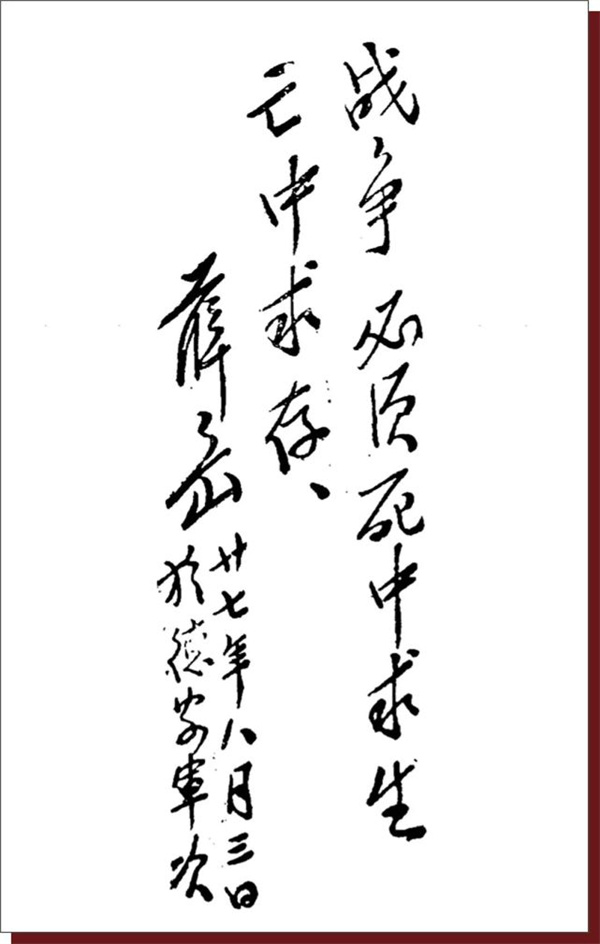 战争必须死中求生
亡中求存、
薛岳
廿七年八月三日
於德安軍次